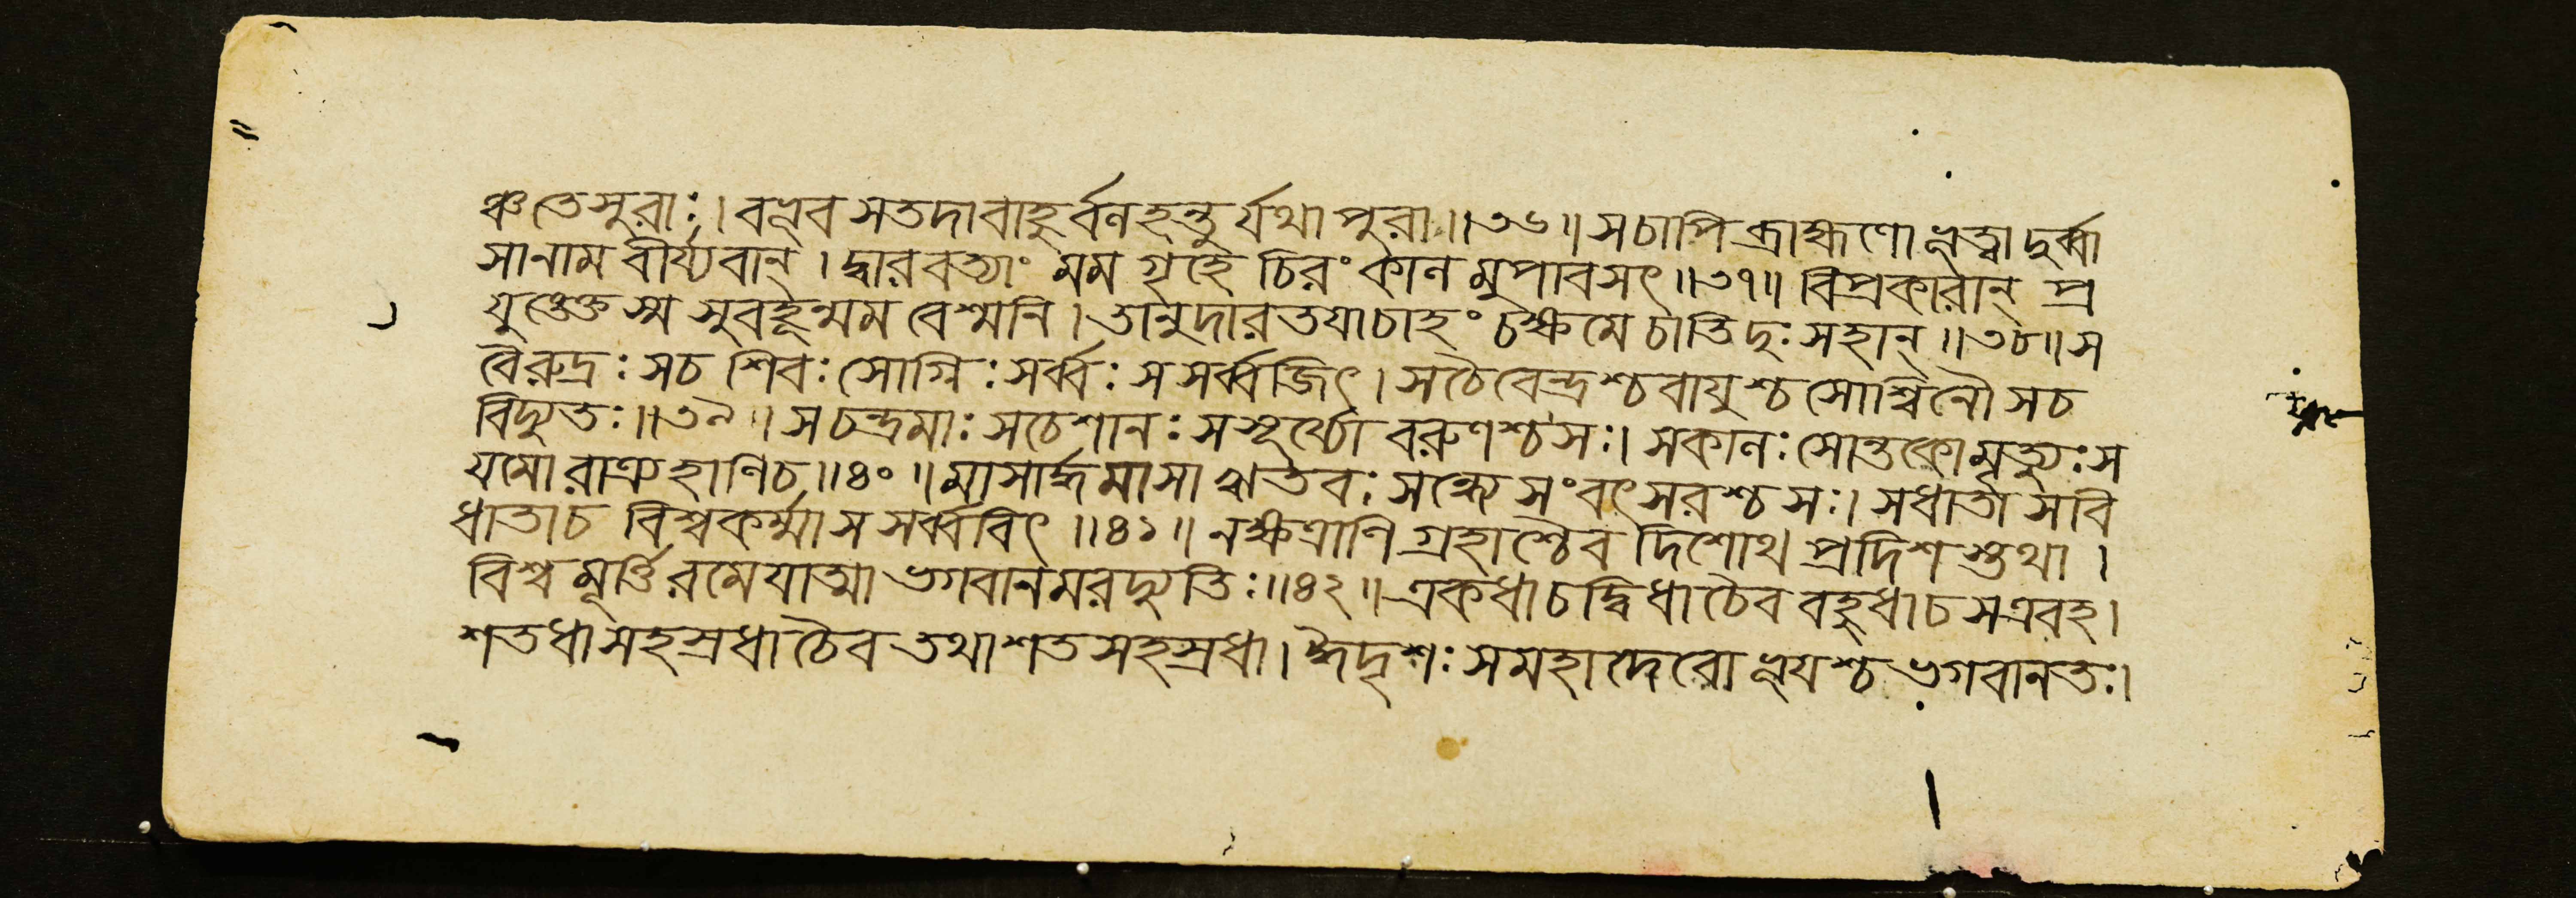 ঞ্চতেসুরাঃ।বভূবসতদাবাহুর্বলহন্তুর্যথাপুরা॥৩৬॥সচাপিব্রাহ্মণোভূত্বাদুর্ব্বা
সানামবীর্য্যবান্।দ্বারবত্যাংমমগৃহেচিরংকালমুপাবসৎ॥৩৭॥বিপ্রকারান্প্র
যুঙ্ক্তেস্মসুবহূন্মমবেশ্মনি।তানুদারতযাচাহংচক্ষমেচাতিদুঃসহান্॥৩৮॥স
বৈরুদ্রঃসচশিবঃসোগ্নিঃসর্ব্বঃসসর্ব্বজিৎ।সচৈবেন্দ্রশ্চবাযুশ্চসোশ্বিনৌসচ
বিদ্যুতঃ॥৩৯॥সচন্দ্রমাঃসচেশানঃসসূর্য্যোবরুণশ্চসঃ।সকালঃসোন্তকোমৃত্যুঃস
যমোরাত্র্যহাণিচ॥৪০॥মাসার্দ্ধমাসাঋতবঃসন্ধ্যেসংবৎসরশ্চসঃ।সধাতাসবি
ধাতাচবিশ্বকর্ম্মাসসর্ব্ববিৎ॥৪১॥নক্ষত্রাণিগ্রহাশ্চৈবদিশোথপ্রদিশস্তথা।
বিশ্বমূর্ত্তিরমেযাত্মাভগবানমরদ্যুতিঃ॥৪২॥একধাচদ্বিধাচৈববহুধাচসএবহ।
শতধাসহস্রধাচৈবতথাশতসহস্রধা।ঈদৃশঃসমহাদেবোভূযশ্চভগবানতঃ।